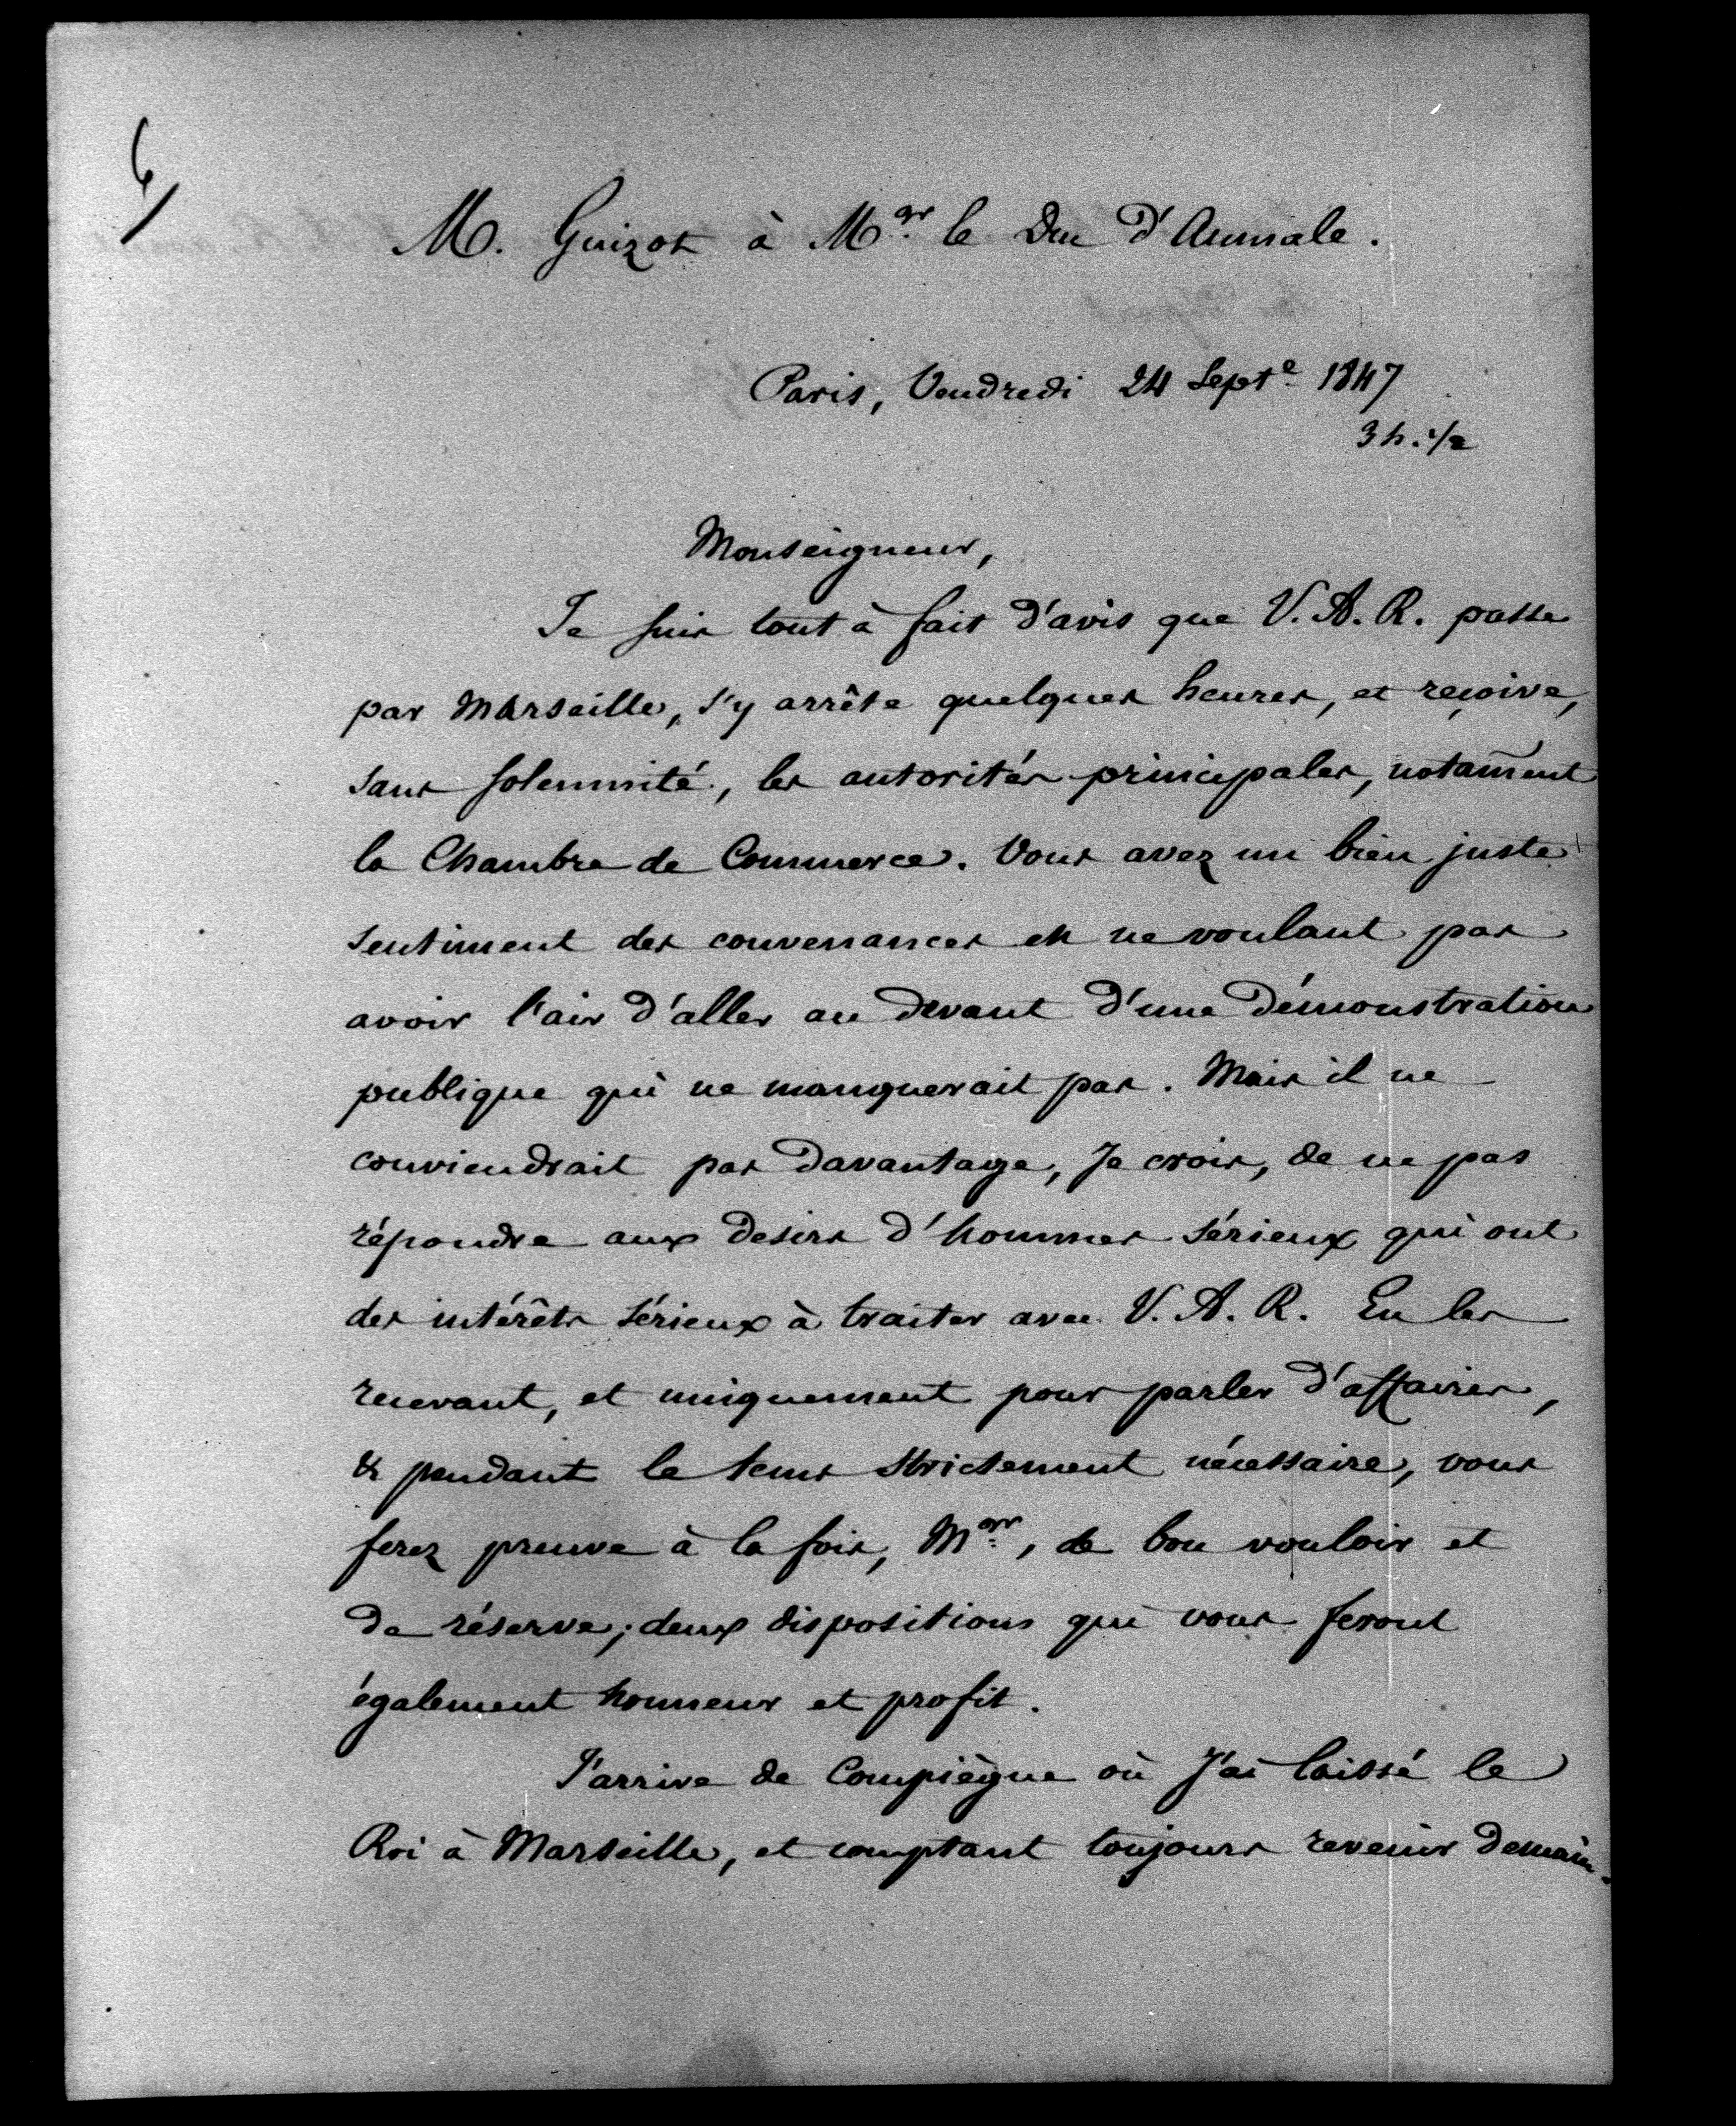 6/
M. Guizot à Mgr. le Duc d'Aumale.
Paris, Vendredi 24 Septe. 1847
3 h. 1/2
Monseigneur,
Je suis tout à fait d'avis que V. A. R. passe
par Marseille, s'y arrête quelques heures, et reçoive,
sans solennité, les autorités principales, notam̄ent
la Chambre de Commerce. Vous avez un bien juste
sentiment des convenances en ne voulant pas
avoir l'air d'aller au devant d'une démonstration
publique qui ne manquerait pas. Mais il ne
conviendrait pas davantage, Je crois, de ne pas
répondre aux desirs d'hommes sérieux qui ont
des intérêts sérieux à traiter avec V. A. R. En les
recevant, et uniquement pour parler d'affaires,
& pendant le tems strictement nécessaire, vous
ferez preuve à la fois, Mgr., de bon vouloir et
de réserve; deux dispositions qui vous feront
également honneur et profit.
J'arrive de Compiègne où J'ai laissé le
Roi à Marseille, et comptant toujours revenir demain.